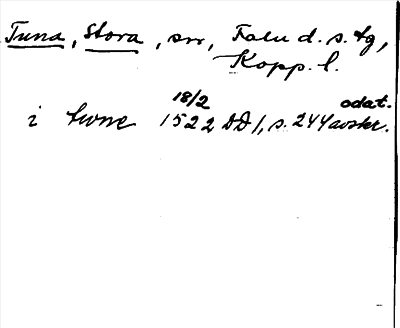 Tuna, Stora, sn, Falu d. s. tg,
Kopp. l.
18/2 odat.
i twne 1522 DD 1, s. 244 avskr.